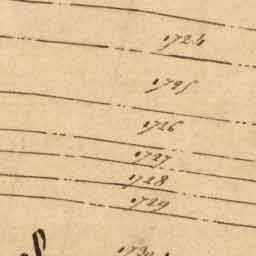 1724
1725
1726
1727
1728
1729
1730